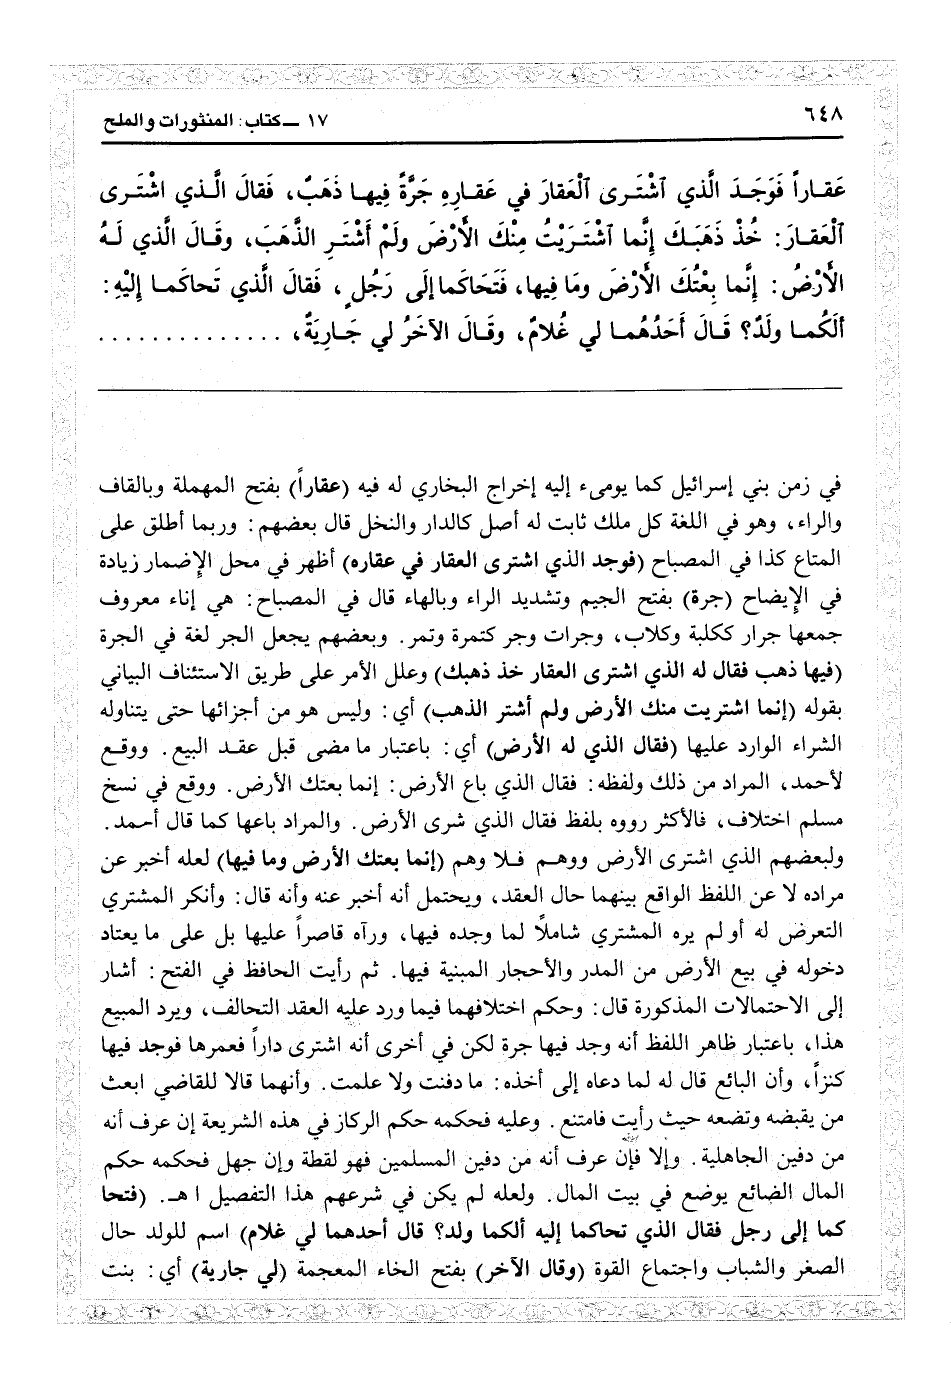 ٦٤٨
١٧ ــ كتاب: المنثورات والملح
عَقـاراً فَوَجَـدَ الَّذي ٱشْتَـرى ٱلْعَقارَ في عَقـارِهِ جَرَّةً فِيهـا ذَهَبٌ، فَقالَ الَّـذي اشْتَـرى
ٱلْعَقـارَ: خُذْ ذَهَبَـكَ إِنَّما ٱشْتَـرَيْتُ مِنْكَ الأَرْضَ ولَمْ أَشْتَـرِ الذَّهَبَ، وقَـالَ الَّذي لَـهُ
الأَرْضُ: إِنَّما بِعْتُكَ الأَرْضَ ومَا فِيها، فَتَحَاكَما إلَى رَجُلٍ، فَقالَ الَّذي تَحاكَمـا إلَيْهِ:
أَلَكُمـا ولَدٌ؟ قَـالَ أَحَدُهُمـا لي غُلامٌ، وقَـالَ الآخَرُ لي جَـارِيَةٌ، . . . . . . . . . . . . . .
في زمن بني إسرائيل كما يومىء إليه إخراج البخاري له فيه (عقاراً) بفتح المهملة وبالقاف
والراء، وهو في اللغة كل ملك ثابت له أصل كالدار والنخل قال بعضهم: وربما أطلق على
المتاع كذا في المصباح (فوجد الذي اشترى العقار في عقاره) أظهر في محل الإضمار زيادة
في الإيضاح (جرة) بفتح الجيم وتشديد الراء وبالهاء قال في المصباح: هي إناء معروف
جمعها جرار ككلبة وكلاب، وجرات وجر كتمرة وتمر. وبعضهم يجعل الجر لغة في الجرة
(فيها ذهب فقال له الذي اشترى العقار خذ ذهبك) وعلل الأمر على طريق الاستئناف البياني
بقوله (إنما اشتريت منك الأرض ولم أشتر الذهب) أي: وليس هو من أجزائها حتى يتناوله
الشراء الوارد عليها (فقال الذي له الأرض) أي: باعتبار ما مضى قبل عقـد البيع. ووقـع
لأحمد، المراد من ذلك ولفظه: فقال الذي باع الأرض: إنما بعتك الأرض. ووقع في نسخ
مسلم اختلاف، فالأكثر رووه بلفظ فقال الذي شرى الأرض. والمراد باعها كما قال أحمـد.
ولبعضهم الذي اشترى الأرض ووهـم فـلا وهم (إنما بعتك الأرض وما فيها) لعله أخبر عن
مراده لا عن اللفظ الواقع بينهما حال العقد، ويحتمل أنه أخبر عنه وأنه قال: وأنكر المشتري
التعرض له أو لم يره المشتري شاملاً لما وجده فيها، ورآه قاصراً عليها بل على ما يعتاد
دخوله في بيع الأرض من المدر والأحجار المبنية فيها. ثم رأيت الحافظ في الفتح: أشار
إلى الاحتمالات المذكورة قال: وحكم اختلافهما فيما ورد عليه العقد التحالف، ويرد المبيع
هذا، باعتبار ظاهر اللفظ أنه وجد فيها جرة لكن في أخرى أنه اشترى داراً فعمرها فوجد فيها
كنزاً، وأن البائع قال له لما دعاه إلى أخذه: ما دفنت ولا علمت. وأنهما قالا للقاضي ابعث
من يقبضه وتضعه حيث رأيت فامتنع. وعليه فحكمه حكم الركاز في هذه الشريعة إن عرف أنه
من دفين الجاهلية. وإلا فإن عرف أنه من دفين المسلمين فهو لقطة وإن جهل فحكمه حكم
المال الضائع يوضع في بيت المال. ولعله لم يكن في شرعهم هذا التفصيل اهـ. (فتحا
كما إلى رجل فقال الذي تحاكما إليه ألكما ولد؟ قال أحدهما لي غلام) اسم للولد حال
الصغر والشباب واجتماع القوة (وقال الآخر) بفتح الخاء المعجمة (لي جارية) أي: بنت